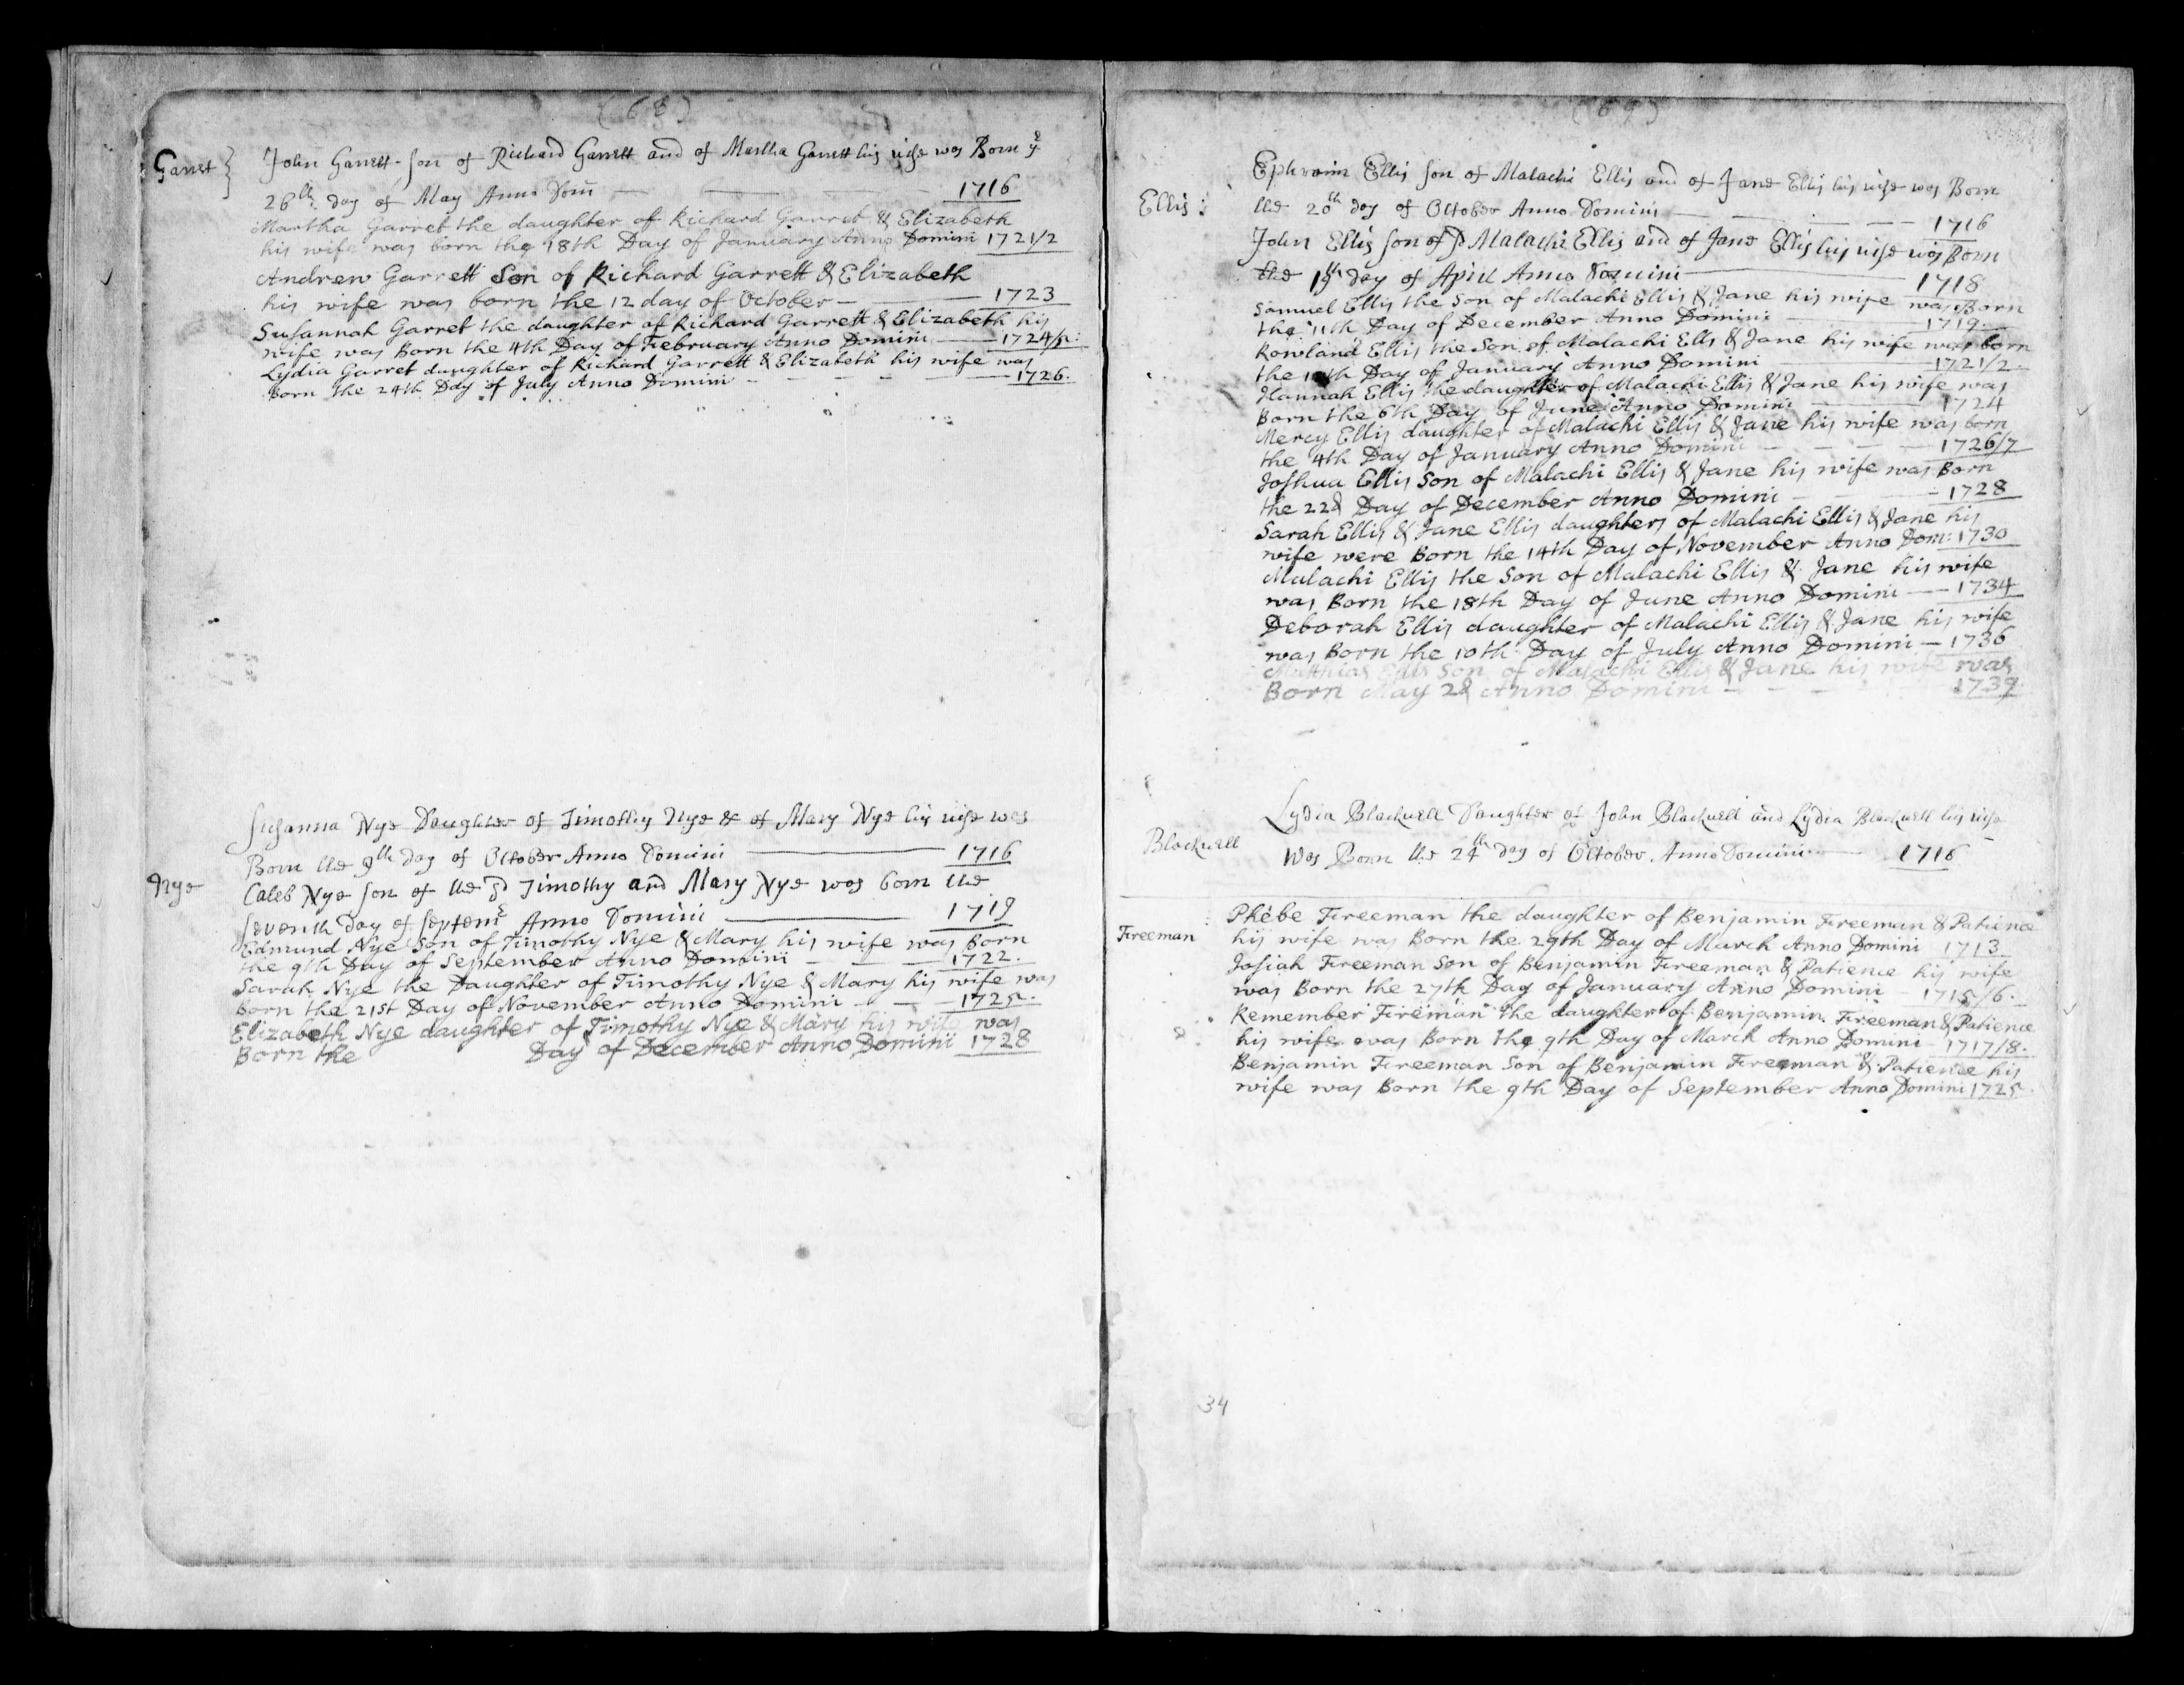 (68)
Garret } John Garrett son of Richard Garrett and of Martha Garrett his wife was Born ye
26th day of May Anno Dom 1716
Martha Garret the daughter of Richard Garret & Elizabeth
his wife was born the 18th Day of January Anno Domini 1721/2
Andrew Garrett Son of Richard Garrett & Elizabeth
his wife was born the 12 day of October — 1723
Susannah Garret the daughter of Richard Garrett & Elizabeth his
wife was Born the 4th Day of February Anno Domini — 1724/5.
Lydia Garret daughter of Richard Garrett & Elizabeth his wife was
Born the 24th Day of July Anno Domini — 1726.
Susanna Nye Daughter of Timothy Nye & of Mary Nye his wife was
Born the 9th day of October Anno Domini — 1716
Nye Caleb Nye son of the sd Timothy and Mary Nye was born the
seventh Day of Septemr Anno Domini — 1719
Edmund Nye Son of Timothy Nye & Mary his wife was Born
the 9th Day of September Anno Domini — 1722.
Sarah Nye the Daughter of Timothy Nye & Mary his wife was
Born the 21st Day of November Anno Domini — 1725.
Elizabeth Nye daughter of Timothy Nye & Mary his wife was
Born the Day of December Anno Domini 1728
(69)
Ephraim Ellis son of Malachi Ellis and of Jane Ellis his wife was Born
Ellis : the 20th day of October Anno Domini — 1716
John Ellis son of sd Malachi Ellis and of Jane Ellis his wife was Born
the 19th day of April Anno Domini — 1718
Samuel Ellis the Son of Malachi Ellis & Jane his wife was Born
the 11th Day of December Anno Domini — 1719.
Rowland Ellis the Son of Malachi Ells & Jane his wife was born
the Day of January Anno Domini — 1721/2.
Hannah Ellis the daughter of Malachi Ellis & Jane his wife was
Born the 6th Day of June Anno Domini — 1724
Mercy Ellis daughter of Malachi Ellis & Jane his wife was born
the 4th Day of January Anno Domini — 1726/7
Joshua Ellis Son of Malachi Ellis & Jane his wife was Born
the 22d Day of December Anno Domini — 1728
Sarah Ellis & Jane Ellis daughters of Malachi Ellis & Jane his
wife were Born the 14th Day of November Anno Dom: 1730
Malachi Ellis the Son of Malachi Ellis & Jane his wife
was Born the 18th Day of June Anno Domini — 1734
Deborah Ellis daughter of Malachi Ellis & Jane his wife
was Born the 10th Day of July Anno Domini — 1736
Matthias Ellis Son of Malachi Ellis & Jane his wife was
Born May 2d Anno Domini — 1739.
Lydia Blackwell Daughter of John Blackwell and Lydia Blackwell his wife
Blackwell Was Born the 24th day of October Anno Domini — 1716
Phebe Freeman the daughter of Benjamin Freeman & Patience
Freeman his wife was Born the 29th Day of March Anno Domini 1713
Josiah Freeman Son of Benjamin Freeman & Patience his wife
was Born the 27th Day of January Anno Domini — 1715/6.
Remember Freeman the daughter of Benjamin Freeman & Patience
his wife was Born the 9th Day of March Anno Domini — 1717/8.
Benjamin Freeman Son of Benjamin Freeman & Patience his
wife was Born the 9th Day of September Anno Domini 1725
34